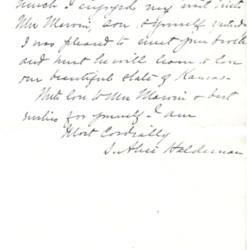 much I enjoyed my visit with
Mrs Marvin, you & yourself
I was pleased to meet your
and trust he will learn to love
our beautiful state of Kansas.
With love to Mrs Marvin & best
wishes for yourself - I am
Most Cordially
S. Alice Haldeman